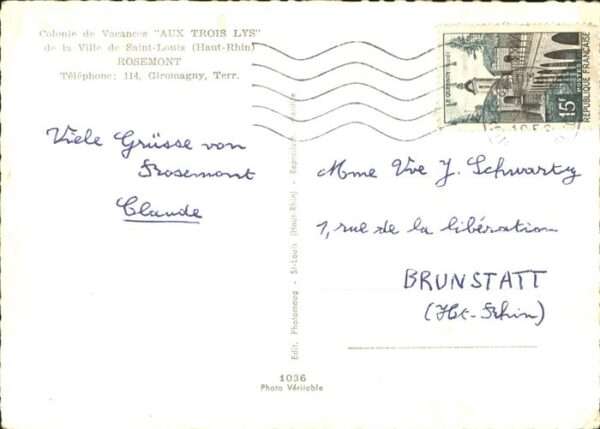 Colonie de Vacances "AUX TROIS LYS"
de la Ville de Saint-Louis (Haut-Rhin)
ROSEMONT
Téléphone: 114, Giromagny, Terr.
LE QUESNOY
15F
RÉPUBLIQUE FRANÇAISE
Viele Grüsse von
Rosemont
Claude
Mme Vve J. Schwartz
1, rue de la libération
BRUNSTATT
(Ht-Rhin)
Edit. Photomnog - St-Louis (Haut-Rhin) - Reproduction interdite
1036
Photo Véritable